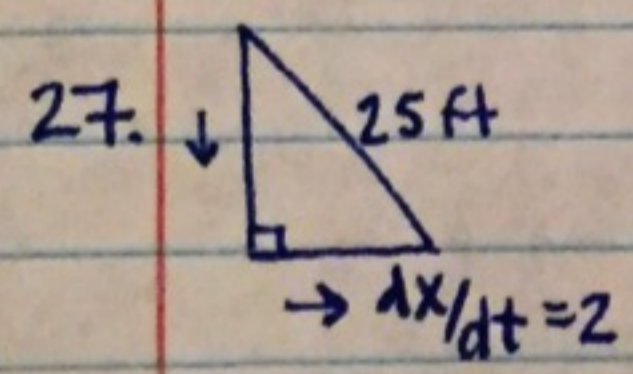 27. ↓ 25ft
→ dx/dt = 2